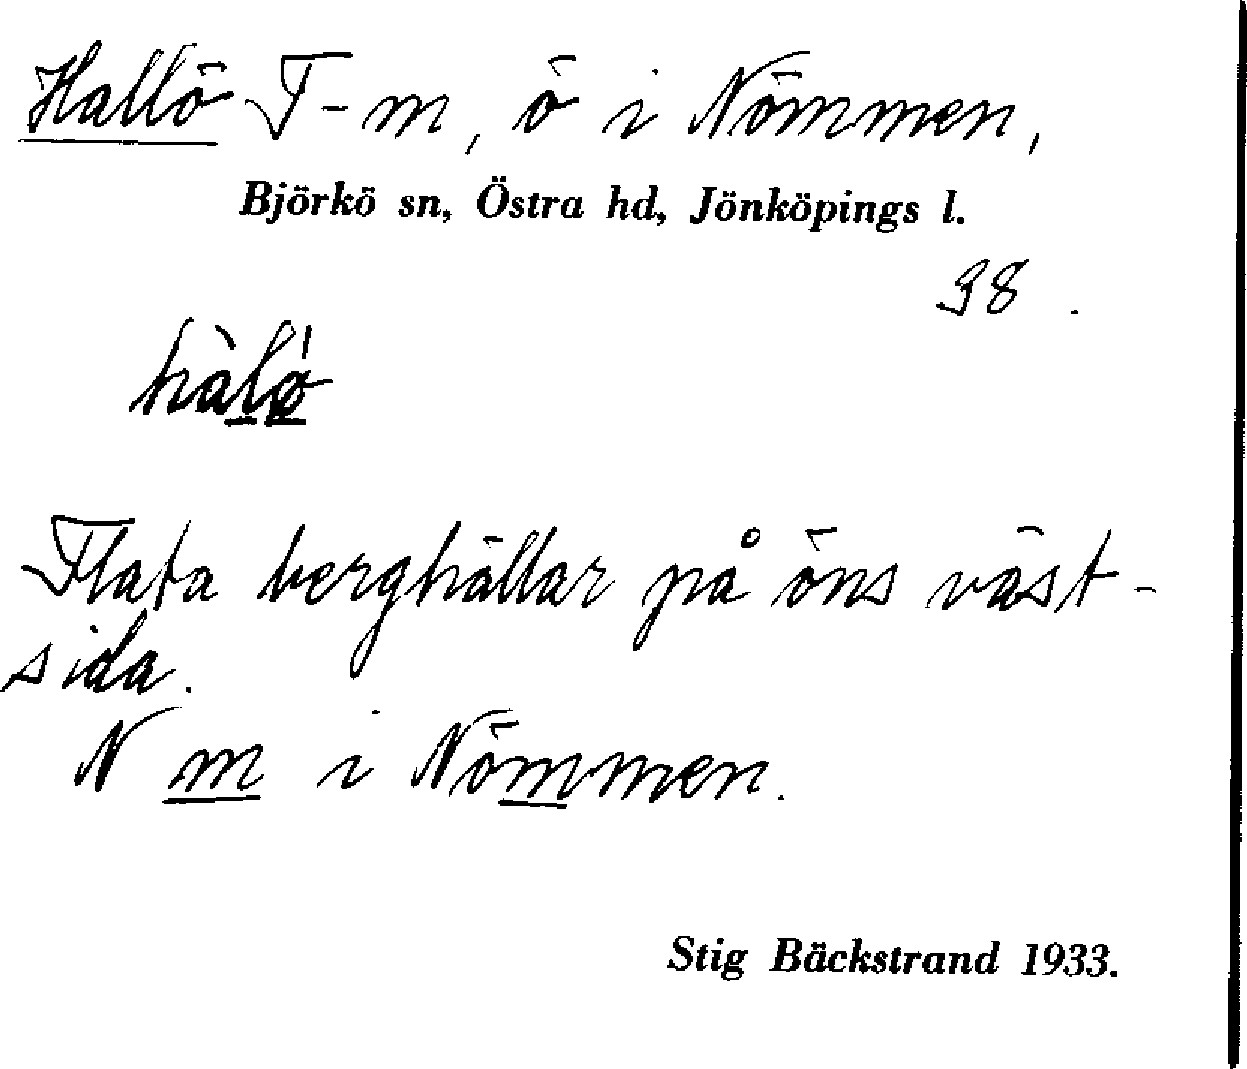 Hallö T-m, ö i Nömmen,
Björkö sn, Östra hd, Jönköpings l.
38.
hàlǿ
Flata berghällar på öns väst-
sida.
N m i Nömmen.
Stig Bäckstrand 1933.